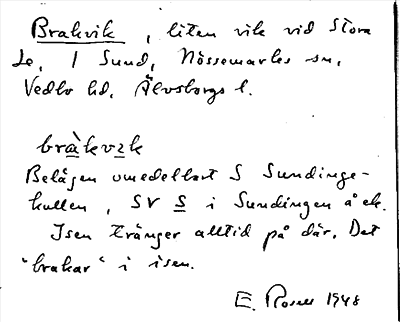 Brakvik, liten vik vid Stora
Le, / Sund, Nössemarks sn,
Vedbo hd, Älvsborgs l.
bràkvik
Belägen omedelbart S Sundinge-
kullen, SV S i Sundingen å ek.
Isen tränger alltid på där. Det
"brakar" i isen.
E. Rosell 1948